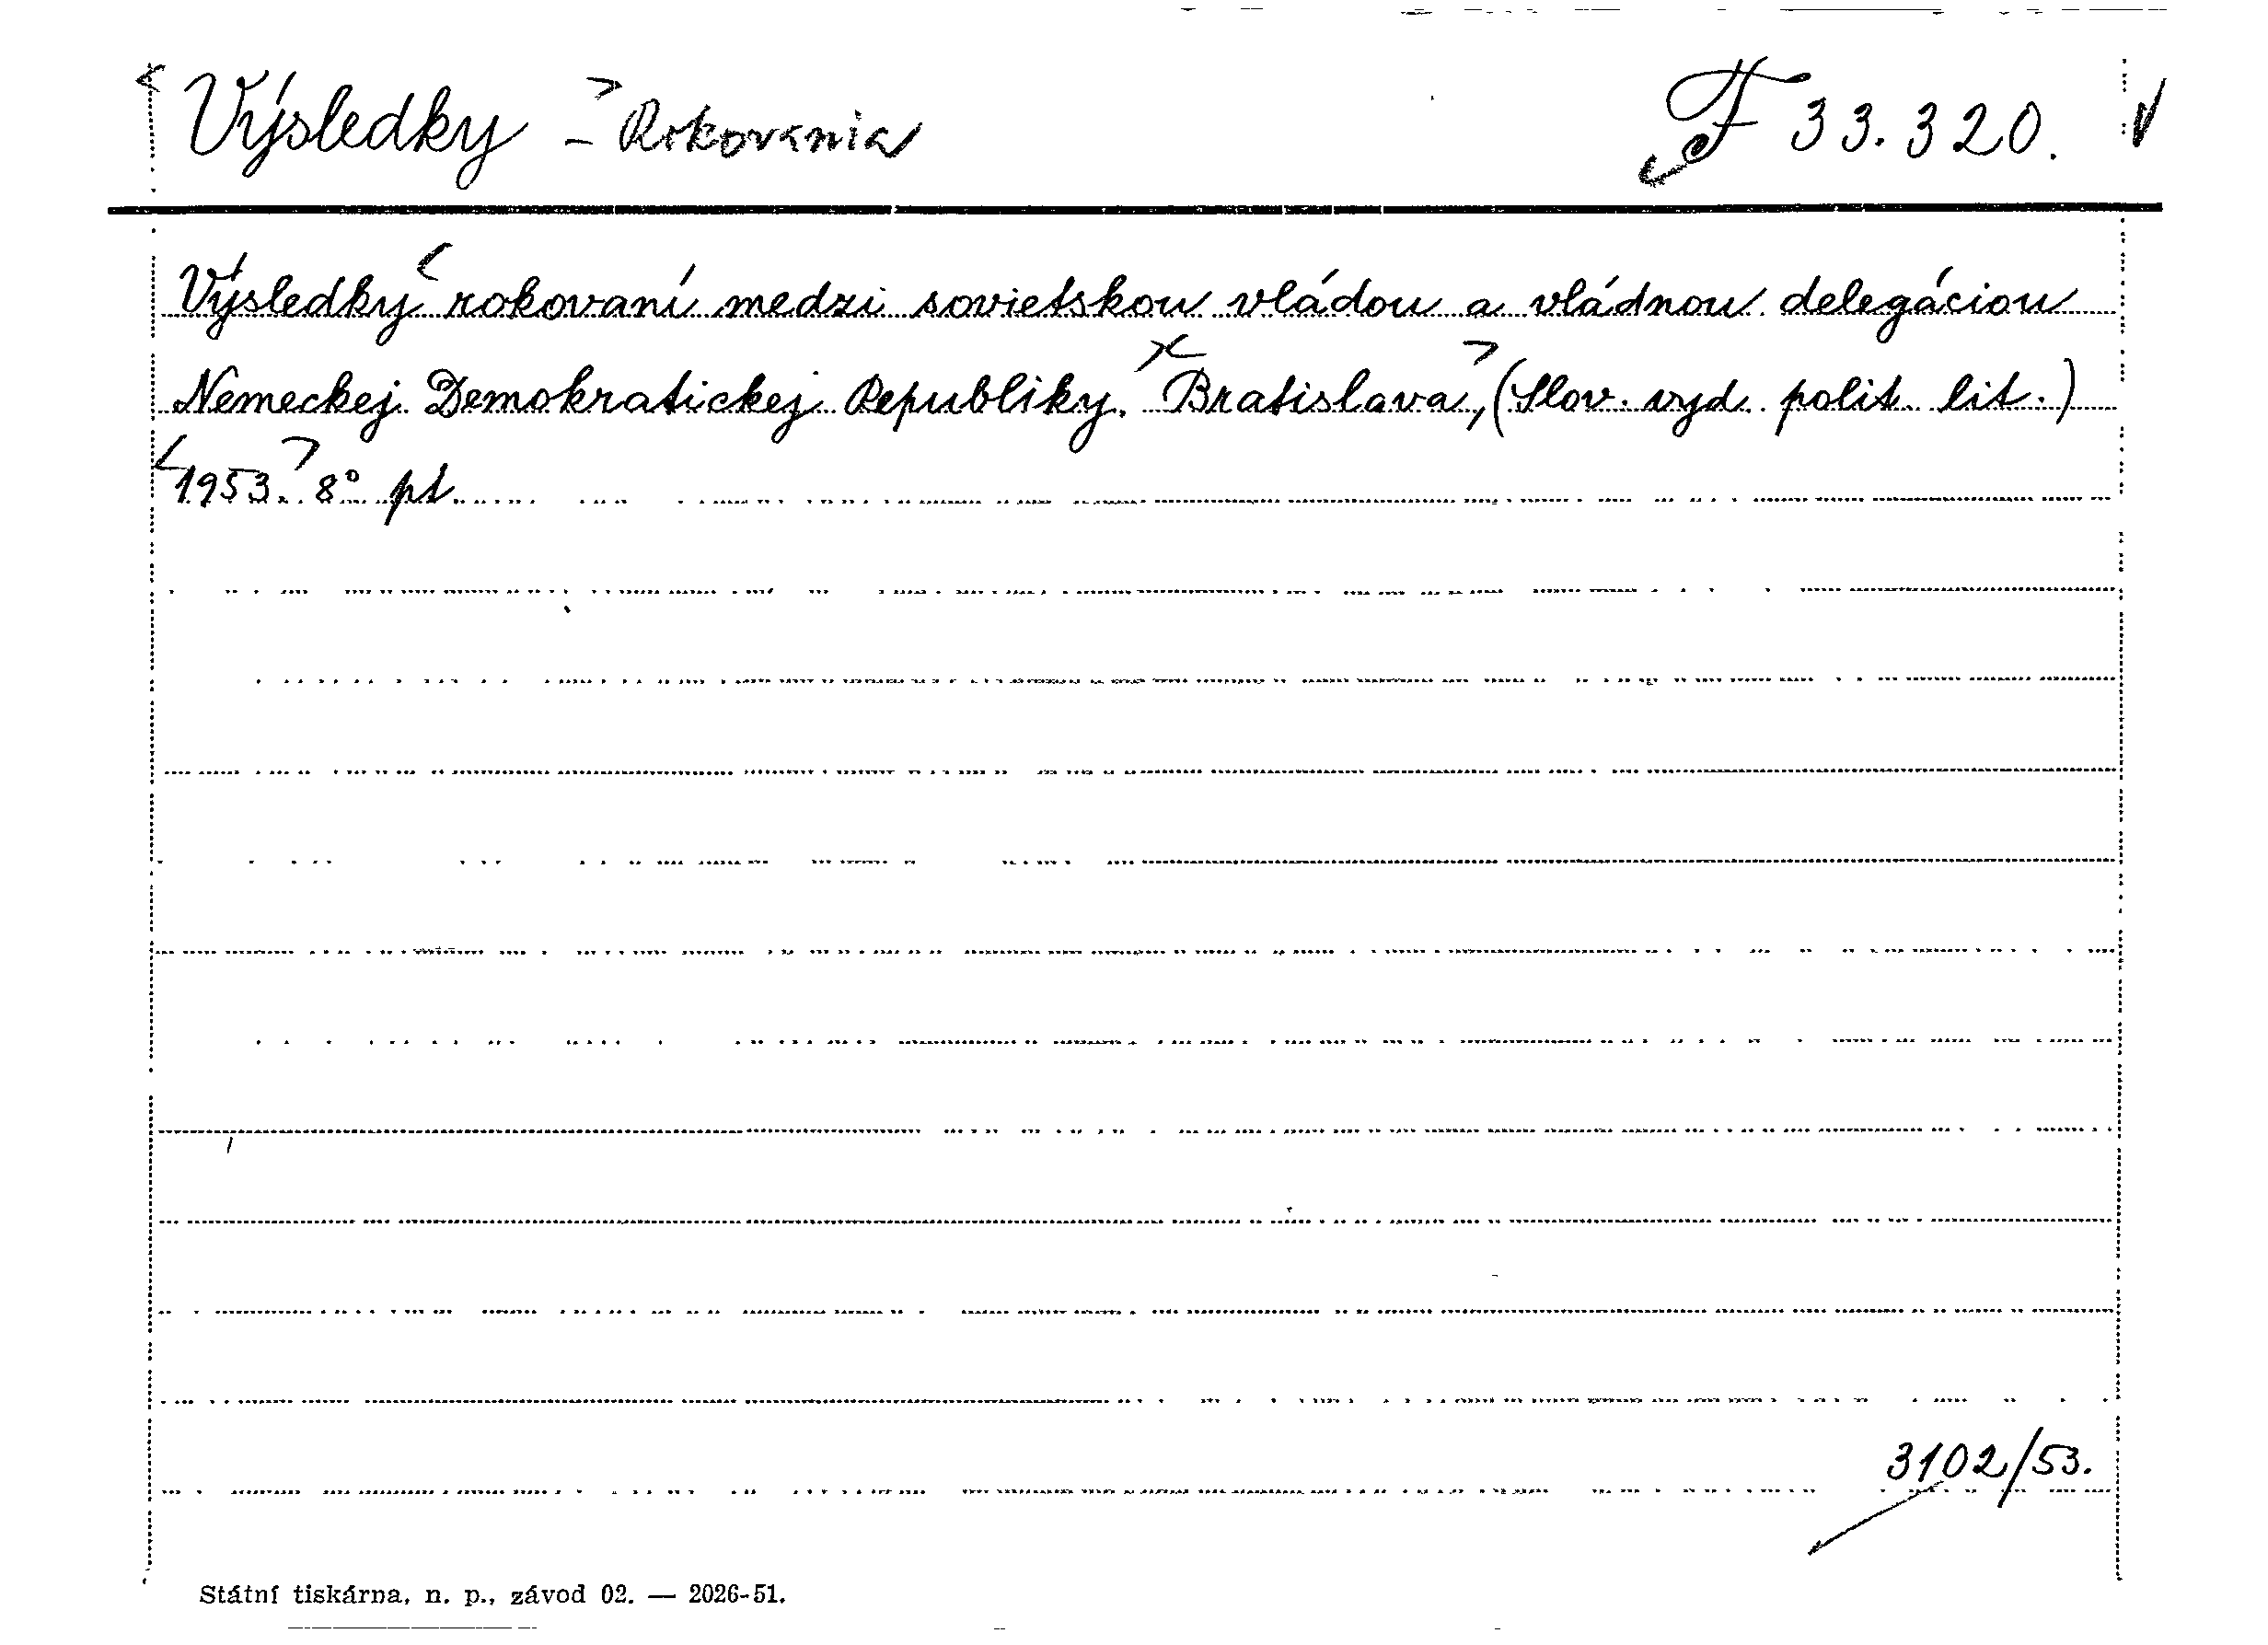 Výsledky - Rokovania F 33.320.
Výsledky rokovaní medzi sovietskou vládou a vládnou delegáciou
Nemeckej Demokratickej Republiky. Bratislava, (Slov. vyd. polit. lit.)
1953. 8° pt.
3102/53.
Státní tiskárna, n. p., závod 02. — 2026-51.